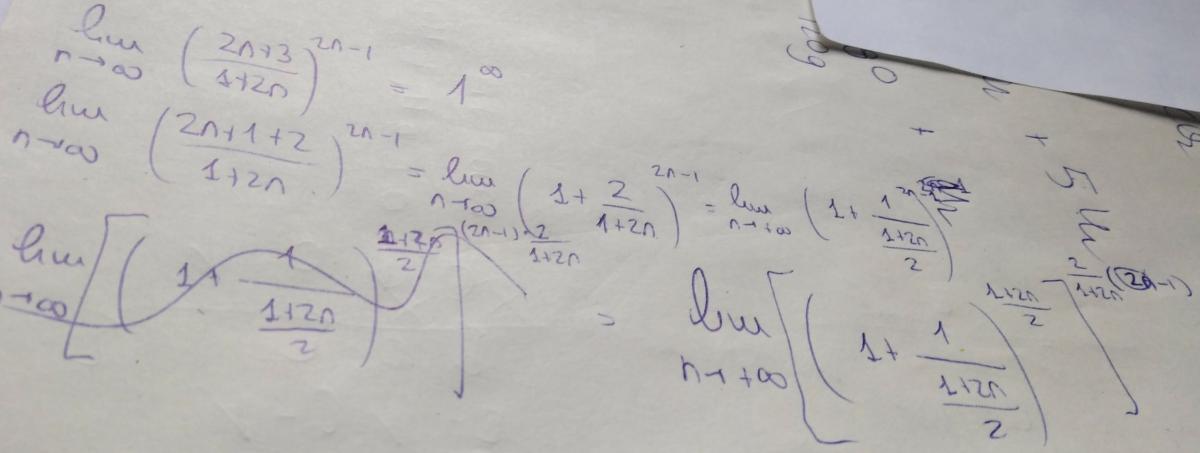 lim n→∞ ((2n+3)/(1+2n))^(2n-1) = 1^∞
lim n→∞ ((2n+1+2)/(1+2n))^(2n-1) = lim n→∞ (1+2/(1+2n))^(2n-1) = lim n→+∞ (1+1/((1+2n)/2))^(2n
lim →∞ [(1+1/((1+2n)/2))^((1+2n)/2)]^((2n-1)·2/(1+2n)) = lim n→+∞ [(1+1/((1+2n)/2))^((1+2n)/2)]^(2/(1+2n)(2n-1))